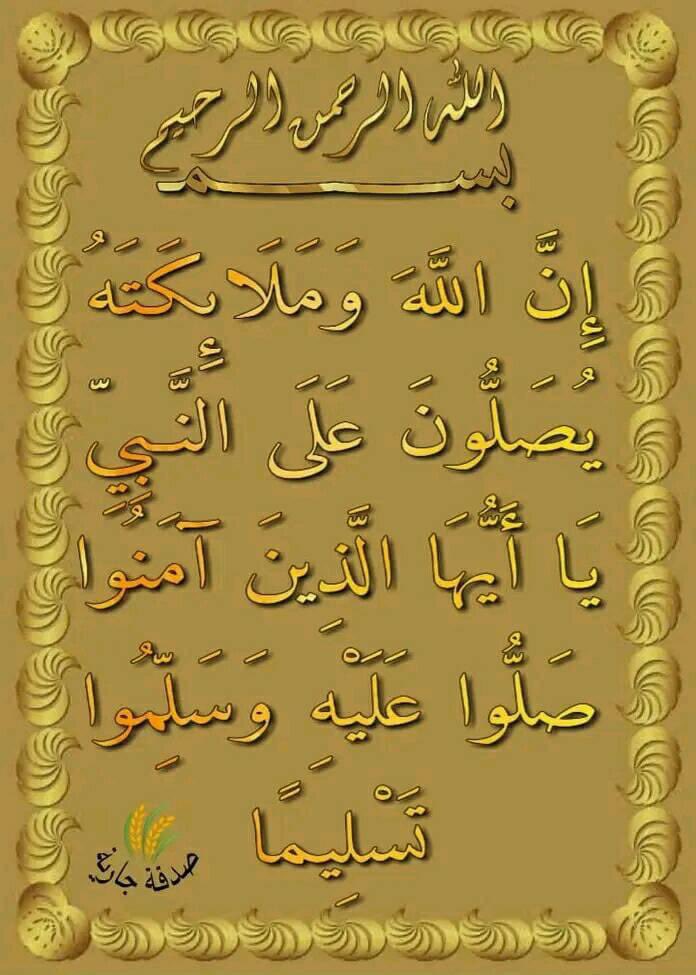 بسم الله الرحمن الرحيم
إِنَّ اللَّهَ وَمَلَائِكَتَهُ
يُصَلُّونَ عَلَى النَّبِيِّ
يَا أَيُّهَا الَّذِينَ آمَنُوا
صَلُّوا عَلَيْهِ وَسَلِّمُوا
تَسْلِيمًا
صدقة جارية